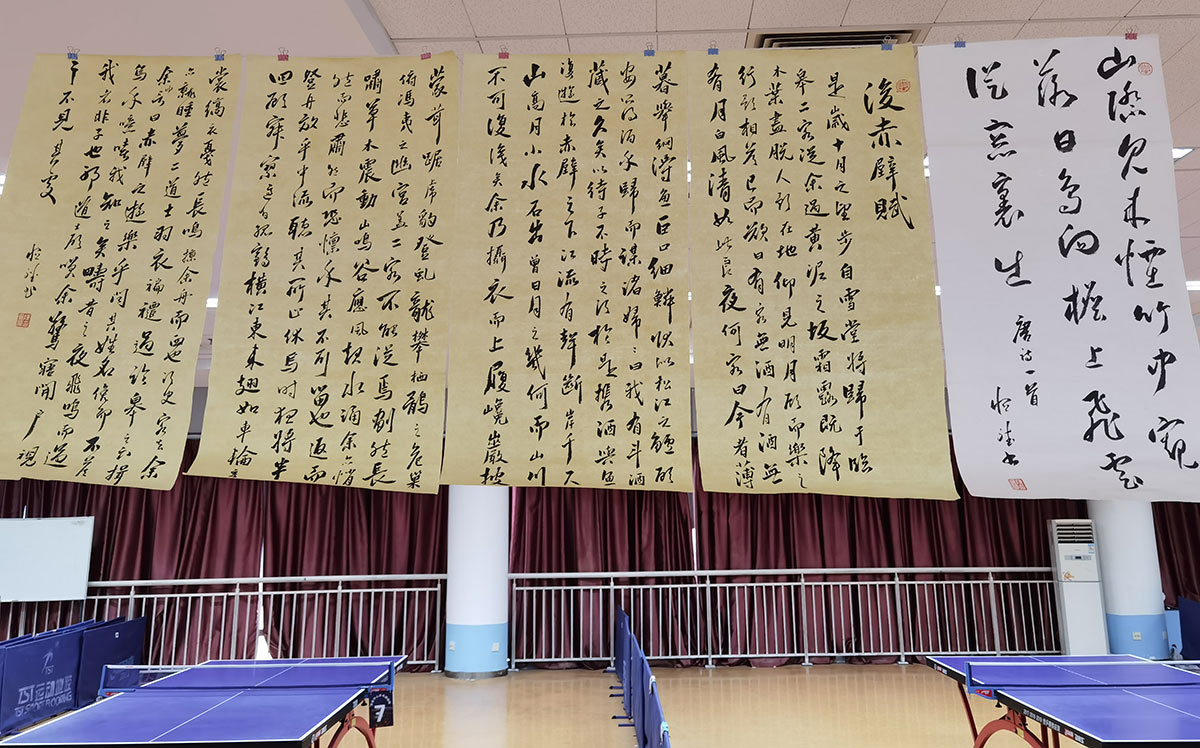 山際見來煙竹中窺
落日鳥向檐上飛雲
從窗裏出
唐诗一首
後赤壁賦
是歲十月之望步自雪堂將歸于臨
皋二客從余過黃泥之坂霜露既降
木葉盡脫人影在地仰見明月顧而樂之
行歌相答已而歎曰有客無酒有酒無
肴月白風清如此良夜何客曰今者薄
暮舉網得魚巨口細鱗狀似松江之鱸顧
安所得酒乎歸而謀諸婦婦曰我有斗酒
藏之久矣以待子不時之須於是攜酒與魚
復遊於赤壁之下江流有聲斷岸千尺
山高月小水石出曾日月之幾何而山川
不可復識矣余乃攝衣而上履巉巖披
蒙茸踞虎豹登虬龍攀栖鶻之危巢
俯馮夷之幽宮蓋二客不能從焉劃然長
嘯草木震動山鳴谷應風起水涌余亦悄
然而悲肅然而恐凜乎其不可留也返而
登舟放乎中流聽其所止休焉時夜將半
四顧寂寥適有孤鶴橫江東來翅如車輪玄
裳縞衣戛然長鳴掠余舟而西也須臾客去余
亦就睡夢二道士羽衣蹁躚過臨皋之下揖
余而言曰赤壁之遊樂乎問其姓名俛而不答
嗚乎噫嘻我知之矣疇昔之夜飛鳴而過
我者非子也邪道士顧笑余驚寤開戶視
之不見其處
TST
TST运动地胶
7